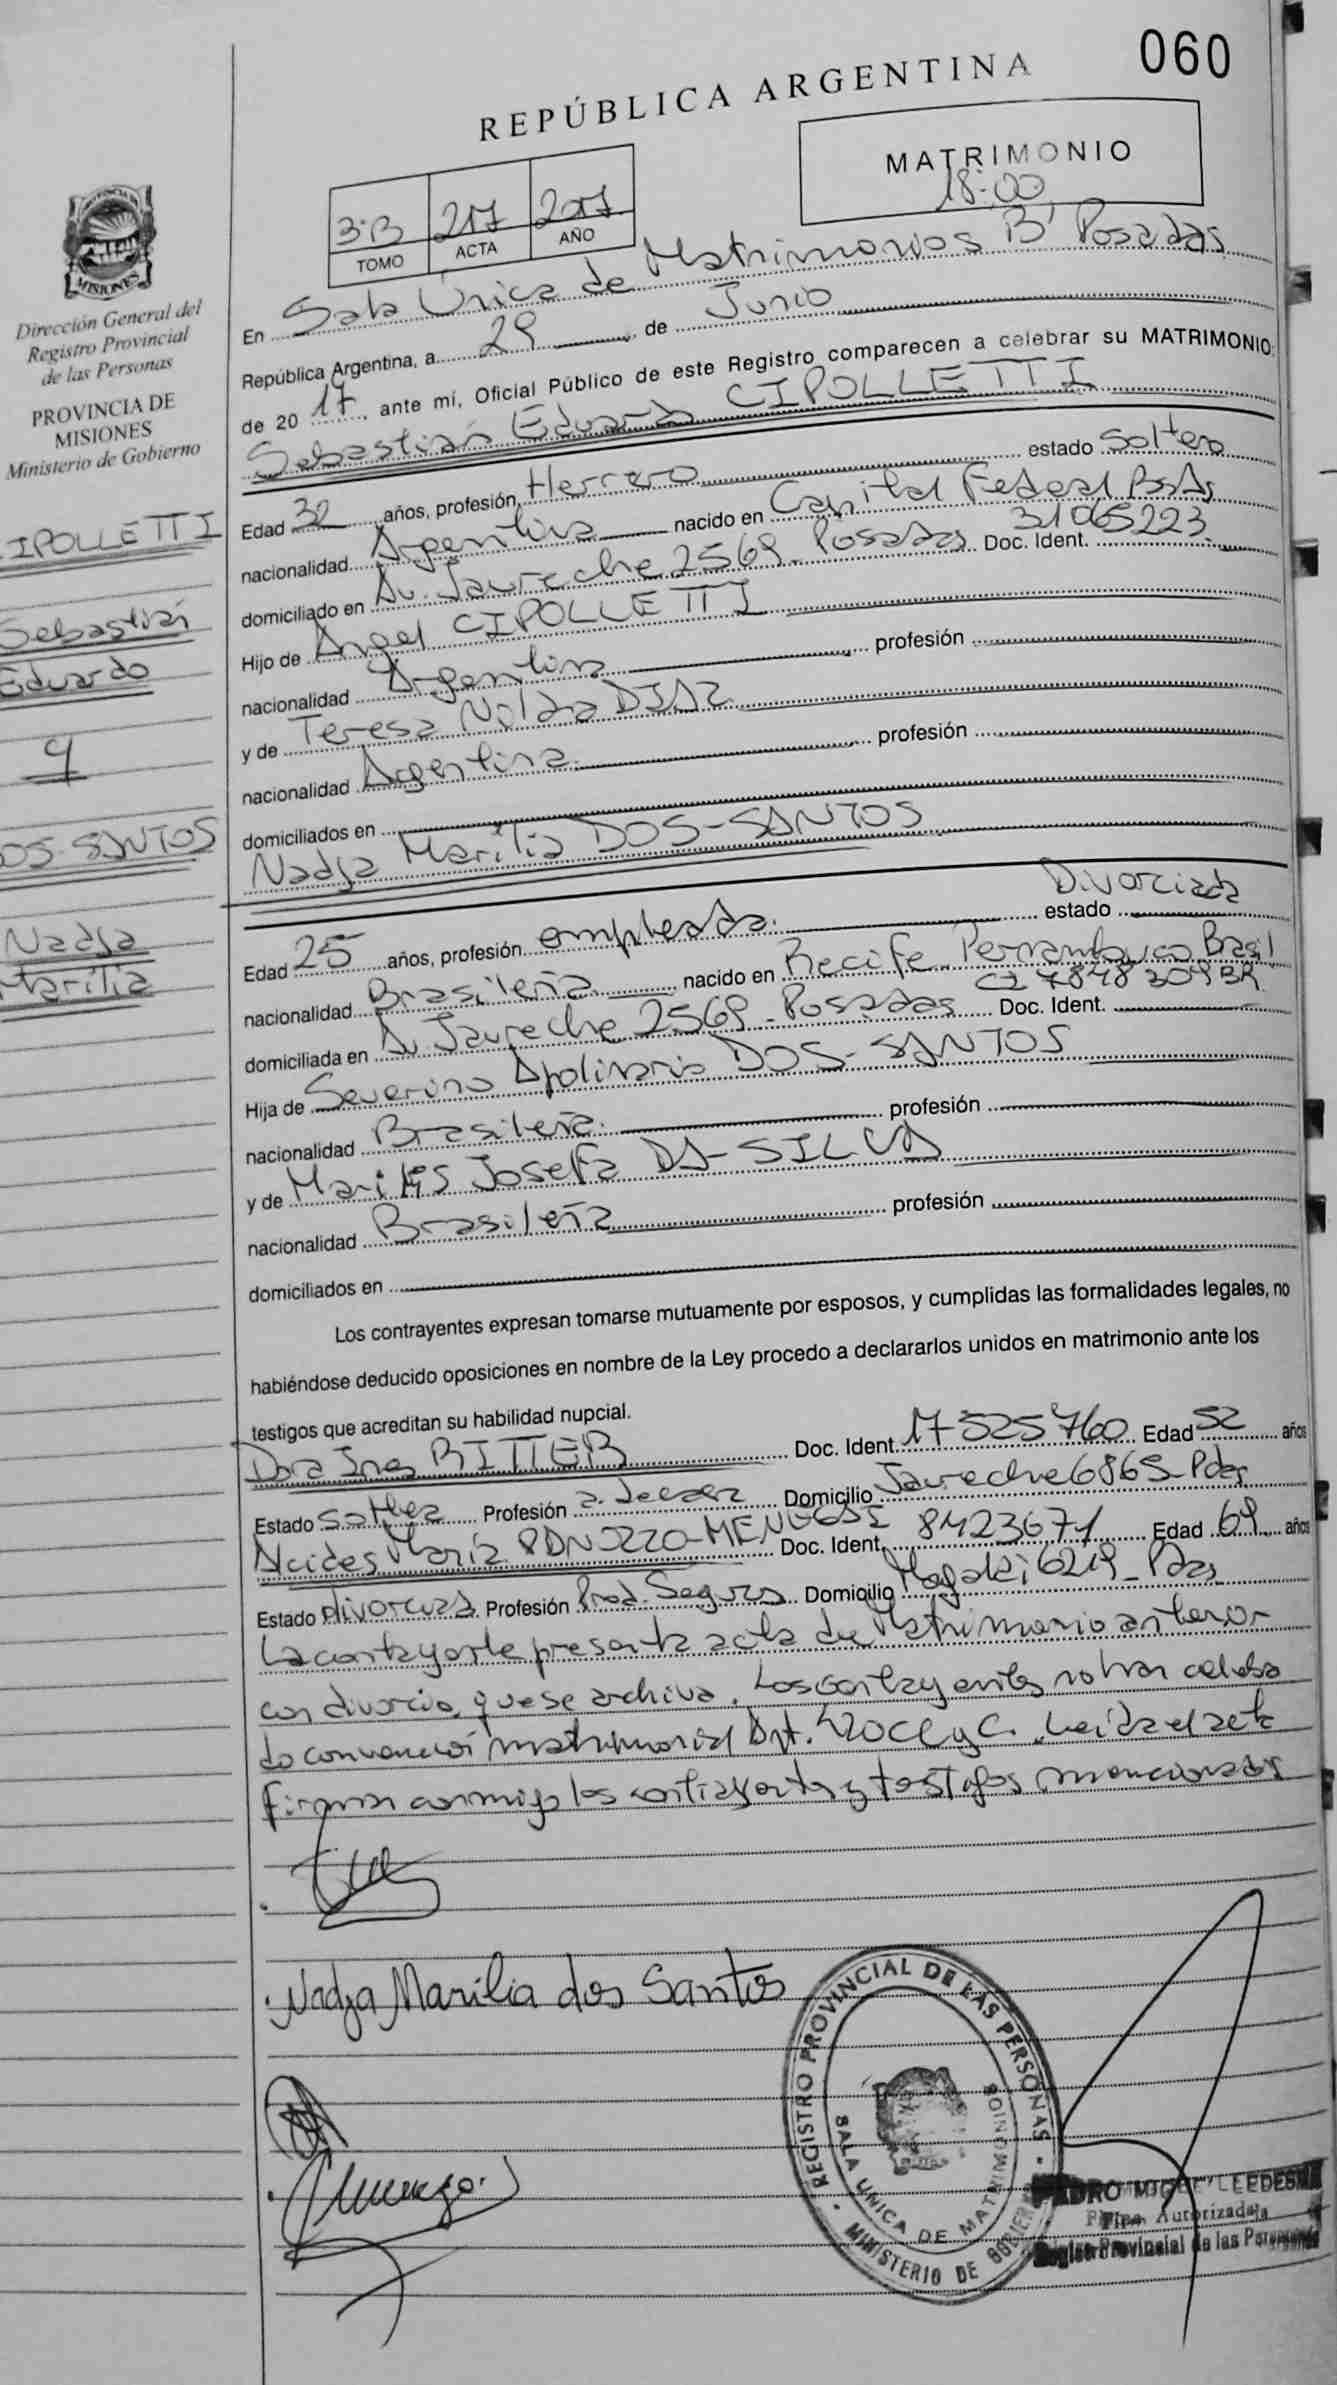 060
REPÚBLICA ARGENTINA
MATRIMONIO
18:00
3ºB 217 2017
TOMO ACTA AÑO
PROVINCIA DE
MISIONES
Dirección General del
Registro Provincial
de las Personas
PROVINCIA DE
MISIONES
Ministerio de Gobierno
IPOLLETTI
Sebastián
Eduardo
y
DOS-SANTOS
Nadja
Marilia
En Sala Única de Matrimonios B' Posadas
República Argentina, a 29 de Junio
de 20 17, ante mí, Oficial Público de este Registro comparecen a celebrar su MATRIMONIO:
Sebastián Eduardo CIPOLLETTI
Edad 32 años, profesión Herrero estado Soltero
nacionalidad Argentina nacido en Capital Federal BsAs
domiciliado en Av. Jaureche 2569 - Posadas Doc. Ident. 31065223
Hijo de Angel CIPOLLETTI
nacionalidad Argentina profesión
y de Teresa DIAZ
nacionalidad Argentina. profesión
domiciliados en
Nadja Marilia DOS-SANTOS
Edad 25 años, profesión empleada. estado Divorciada
nacionalidad Brasileña nacido en Recife Pernambuco Brasil
domiciliada en Av Jaureche 2569 - Posadas Doc. Ident. CI 7848309BR
Hija de Severino Apolinario DOS-SANTOS
nacionalidad Brasileña. profesión
y de Josefa DA-SILVA
nacionalidad Brasileña profesión
domiciliados en
Los contrayentes expresan tomarse mutuamente por esposos, y cumplidas las formalidades legales, no
habiéndose deducido oposiciones en nombre de la Ley procedo a declararlos unidos en matrimonio ante los
testigos que acreditan su habilidad nupcial.
Dora Ines BITTER Doc. Ident. 17525760 Edad 52 años
Estado Soltera Profesión Domicilio Jaureche 6865 - Pdas
Alcides María Doc. Ident. 8423671 Edad 69 años
Estado divorciado Profesión Prod. Seguros Domicilio 6219 - Pdas
La contrayente presenta acta de Matrimonio anterior
con divorcio, que se archiva. Los contrayentes no han celebra
do convención matrimonial Art. 420 CC y C. Leída el acta
firman conmigo los contrayentes y testigos mencionados
Nadja Marilia dos Santos
REGISTRO PROVINCIAL DE LAS PERSONAS
SALA UNICA DE MATRIMONIOS
MINISTERIO DE GOBIERNO
PEDRO MIGUEL LEDESMA
Firma Autorizada
Registro Provincial de las Personas